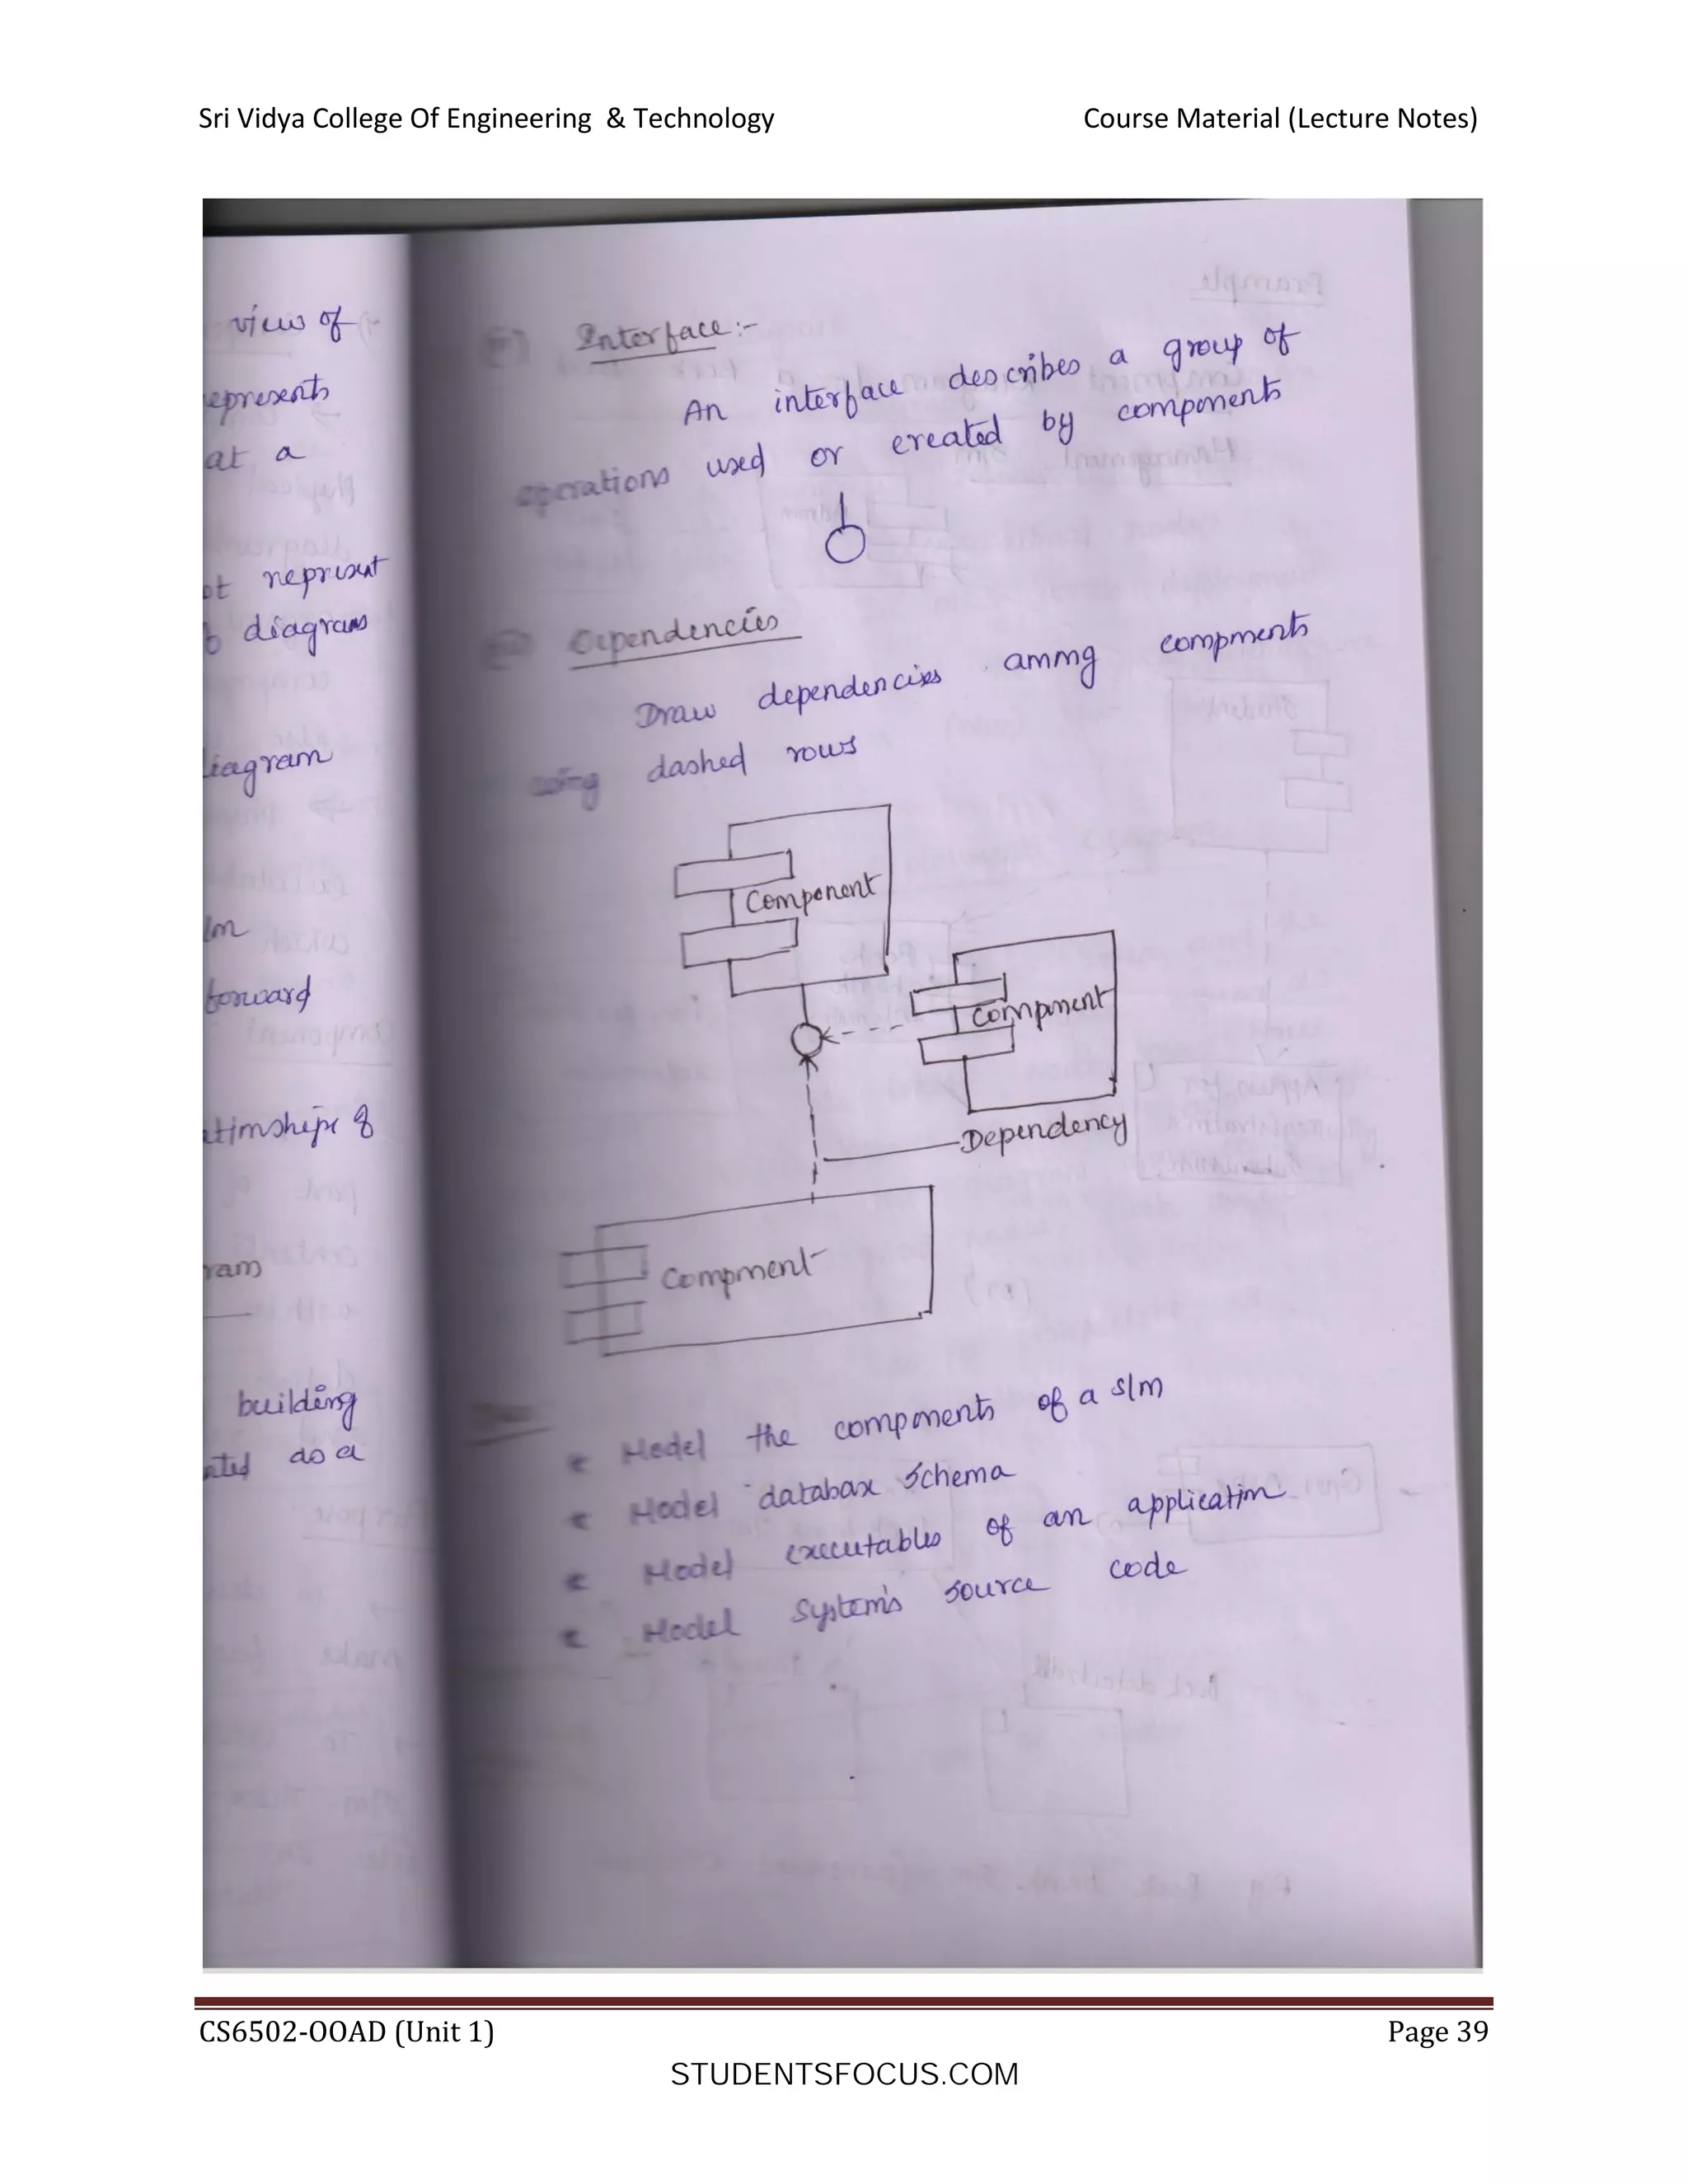 Sri Vidya College Of Engineering & Technology Course Material (Lecture Notes)
view of
epresents
at a
ot reprisent
diagrams
diagram
forward
building
ated as a
Interface:-
An interface describes a group of
operations used or created by components
Dependencies
Draw dependencies among components
using dashed rows
Component
Component
Dependency
Component
* Model the components of a s/m
* Model database schema
* Model executables of an application
* Model System's source code
CS6502-OOAD (Unit 1) Page 39
STUDENTSFOCUS.COM